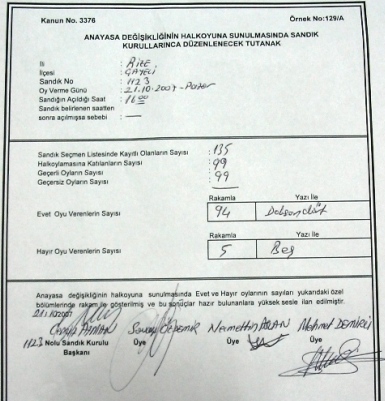 Kanun No. 3376 Örnek No:129/A
ANAYASA DEĞİŞİKLİĞİNİN HALKOYUNA SUNULMASINDA SANDIK
KURULLARINCA DÜZENLENECEK TUTANAK
İli : RİZE
İlçesi : ÇAYELİ
Sandık No : 1123
Oy Verme Günü : 21.10.2007-Pazar
Sandığın Açıldığı Saat : 16
Sandık belirlenen saatten
sonra açılmışsa sebebi : —
Sandık Seçmen Listesinde Kayıtlı Olanların Sayısı : 135
Halkoylamasına Katılanların Sayısı : 99
Geçerli Oyların Sayısı : 99
Geçersiz Oyların Sayısı : —
Rakamla Yazı İle
Evet Oyu Verenlerin Sayısı 94 Doksandört
Rakamla Yazı İle
Hayır Oyu Verenlerin Sayısı 5 Beş
Anayasa değişikliğinin halkoyuna sunulmasında Evet ve Hayır oylarının sayıları yukarıdaki özel
bölümlerinde rakam ile gösterilmiş ve bu sonuçlar hazır bulunanlara yüksek sesle ilan edilmiştir.
21.10.2007
Necmettin Mehmet DEMİRCİ
1123 Nolu Sandık Kurulu Üye Üye Üye
Başkanı